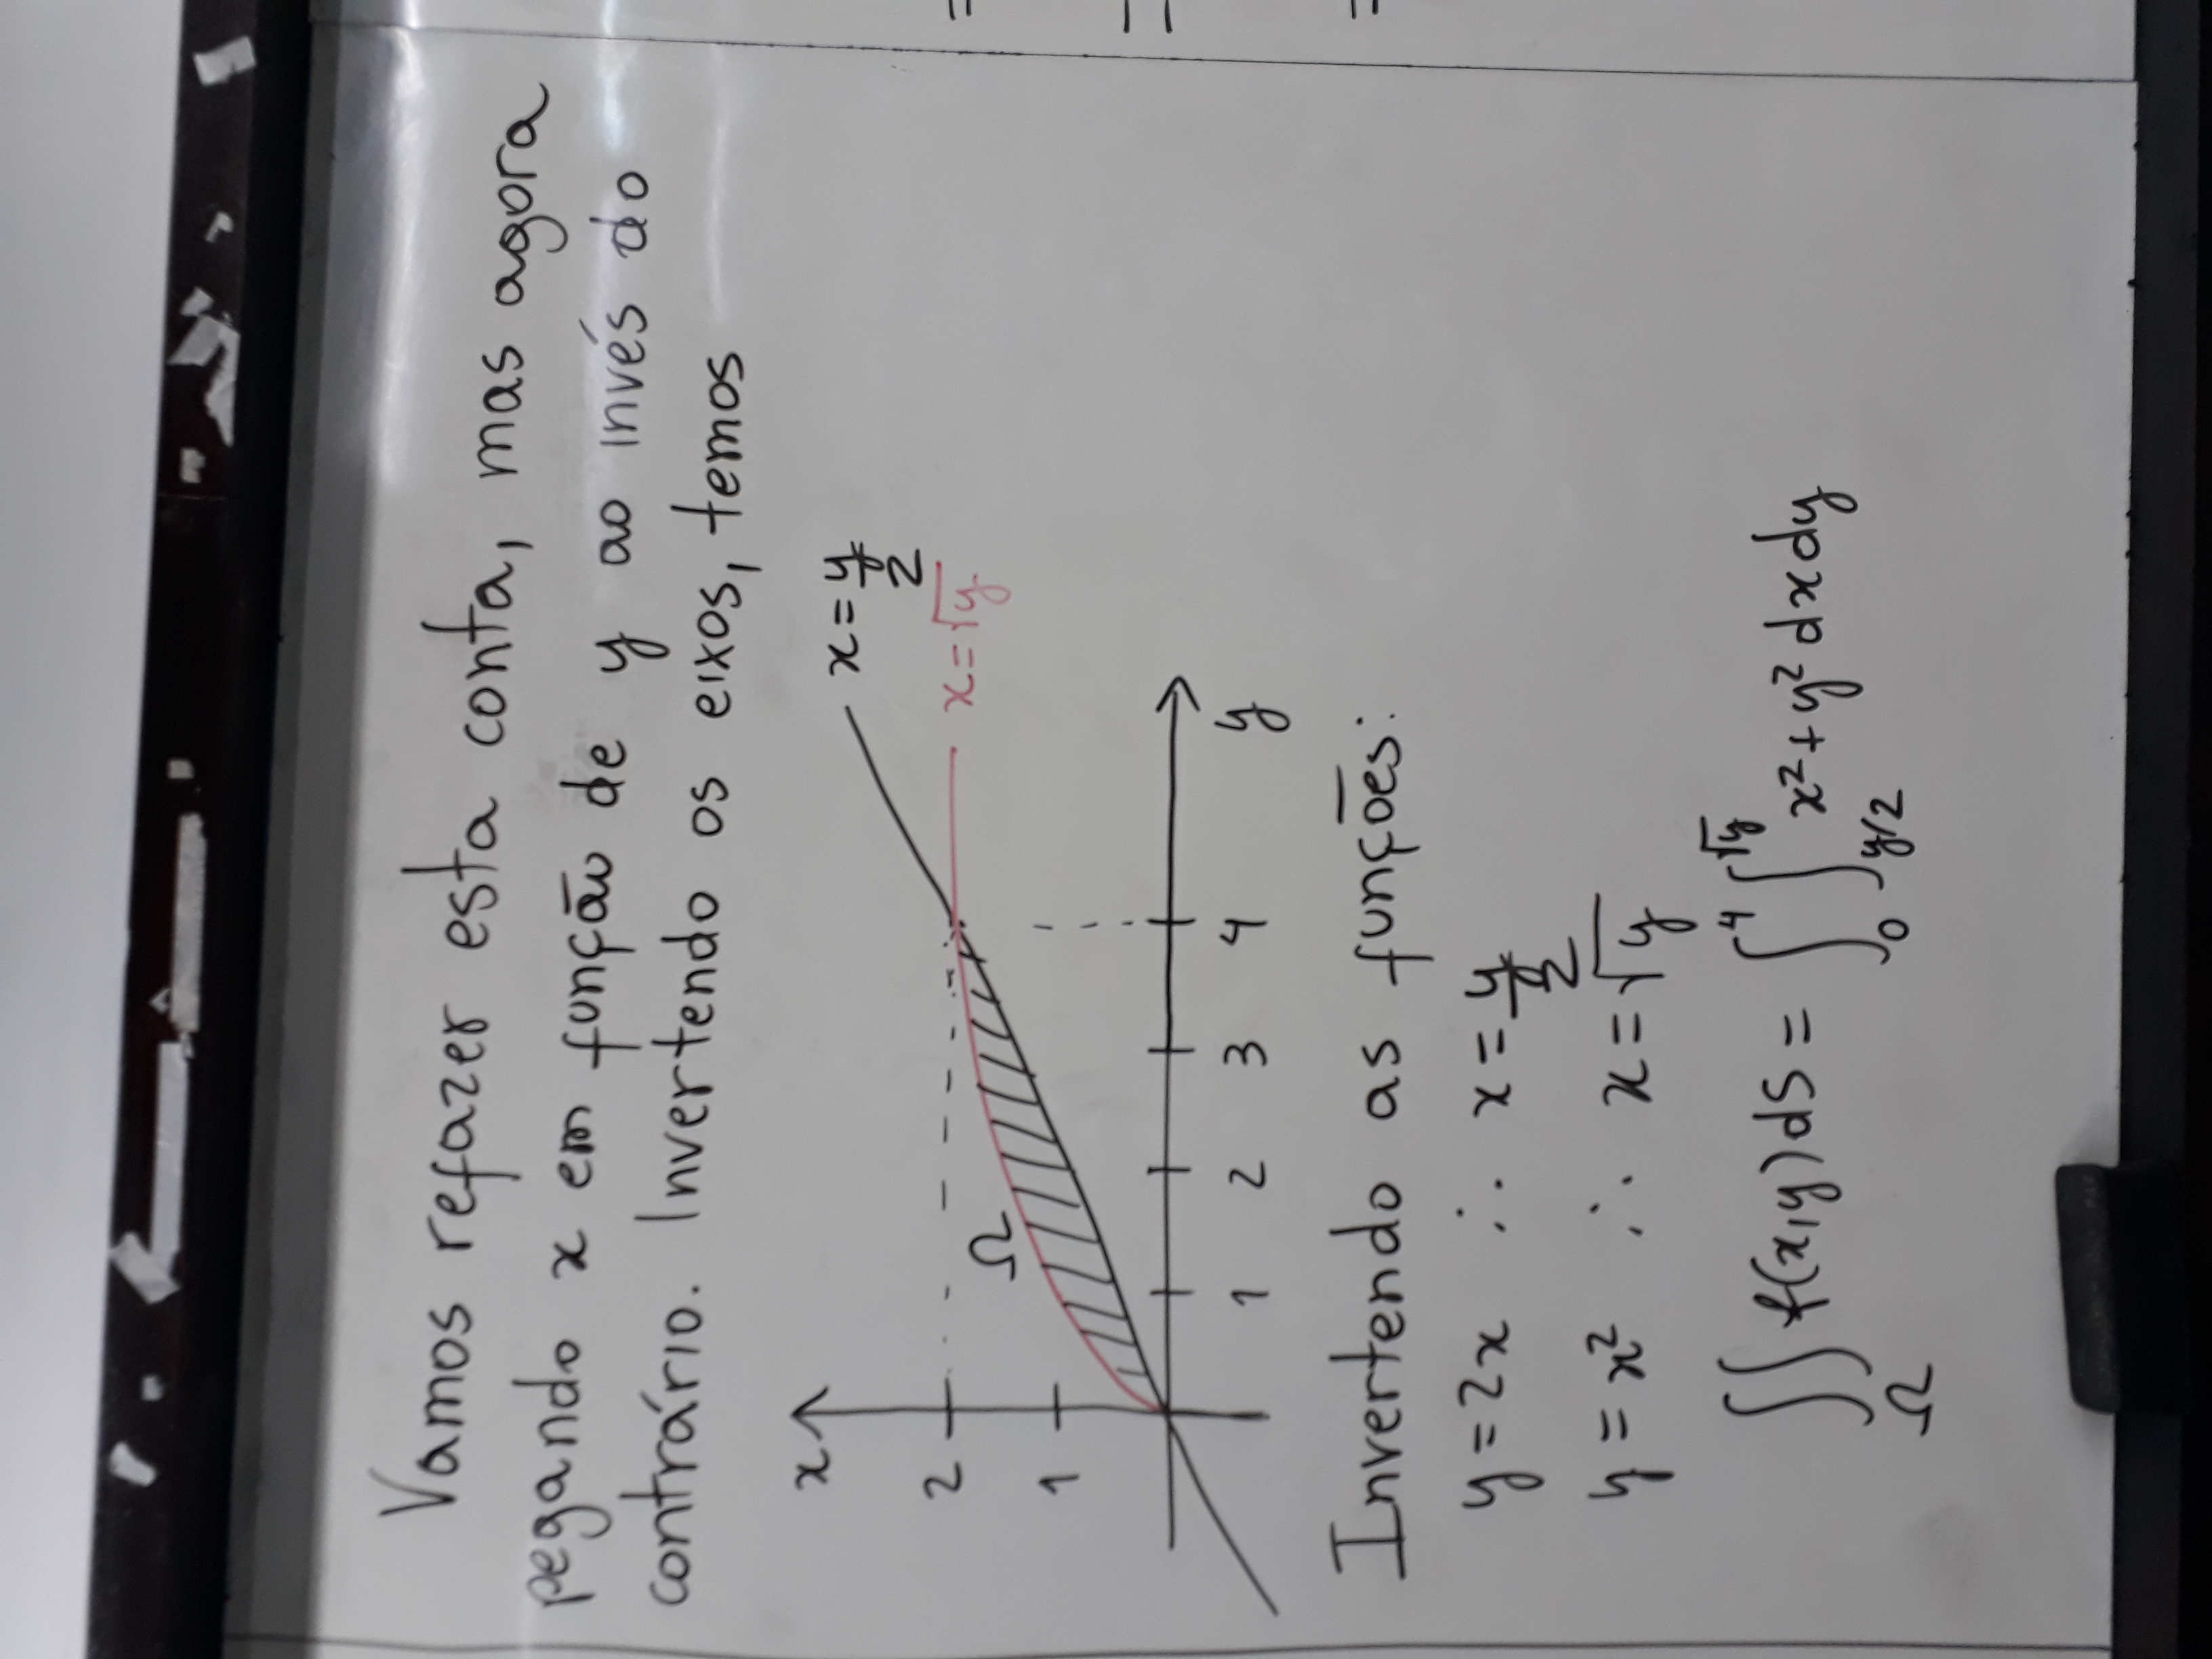 Vamos refazer esta conta, mas agora
pegando x em função de y ao invés do
contrário. Invertendo os eixos, temos
x
x = y/2
2
x = √y
Ω
1
1 2 3 4 y
Invertendo as funções:
y = 2x ∴ x = y/2
y = x² ∴ x = √y
∬_Ω f(x,y) dS = ∫_0^4 ∫_{y/2}^{√y} x² + y² dx dy